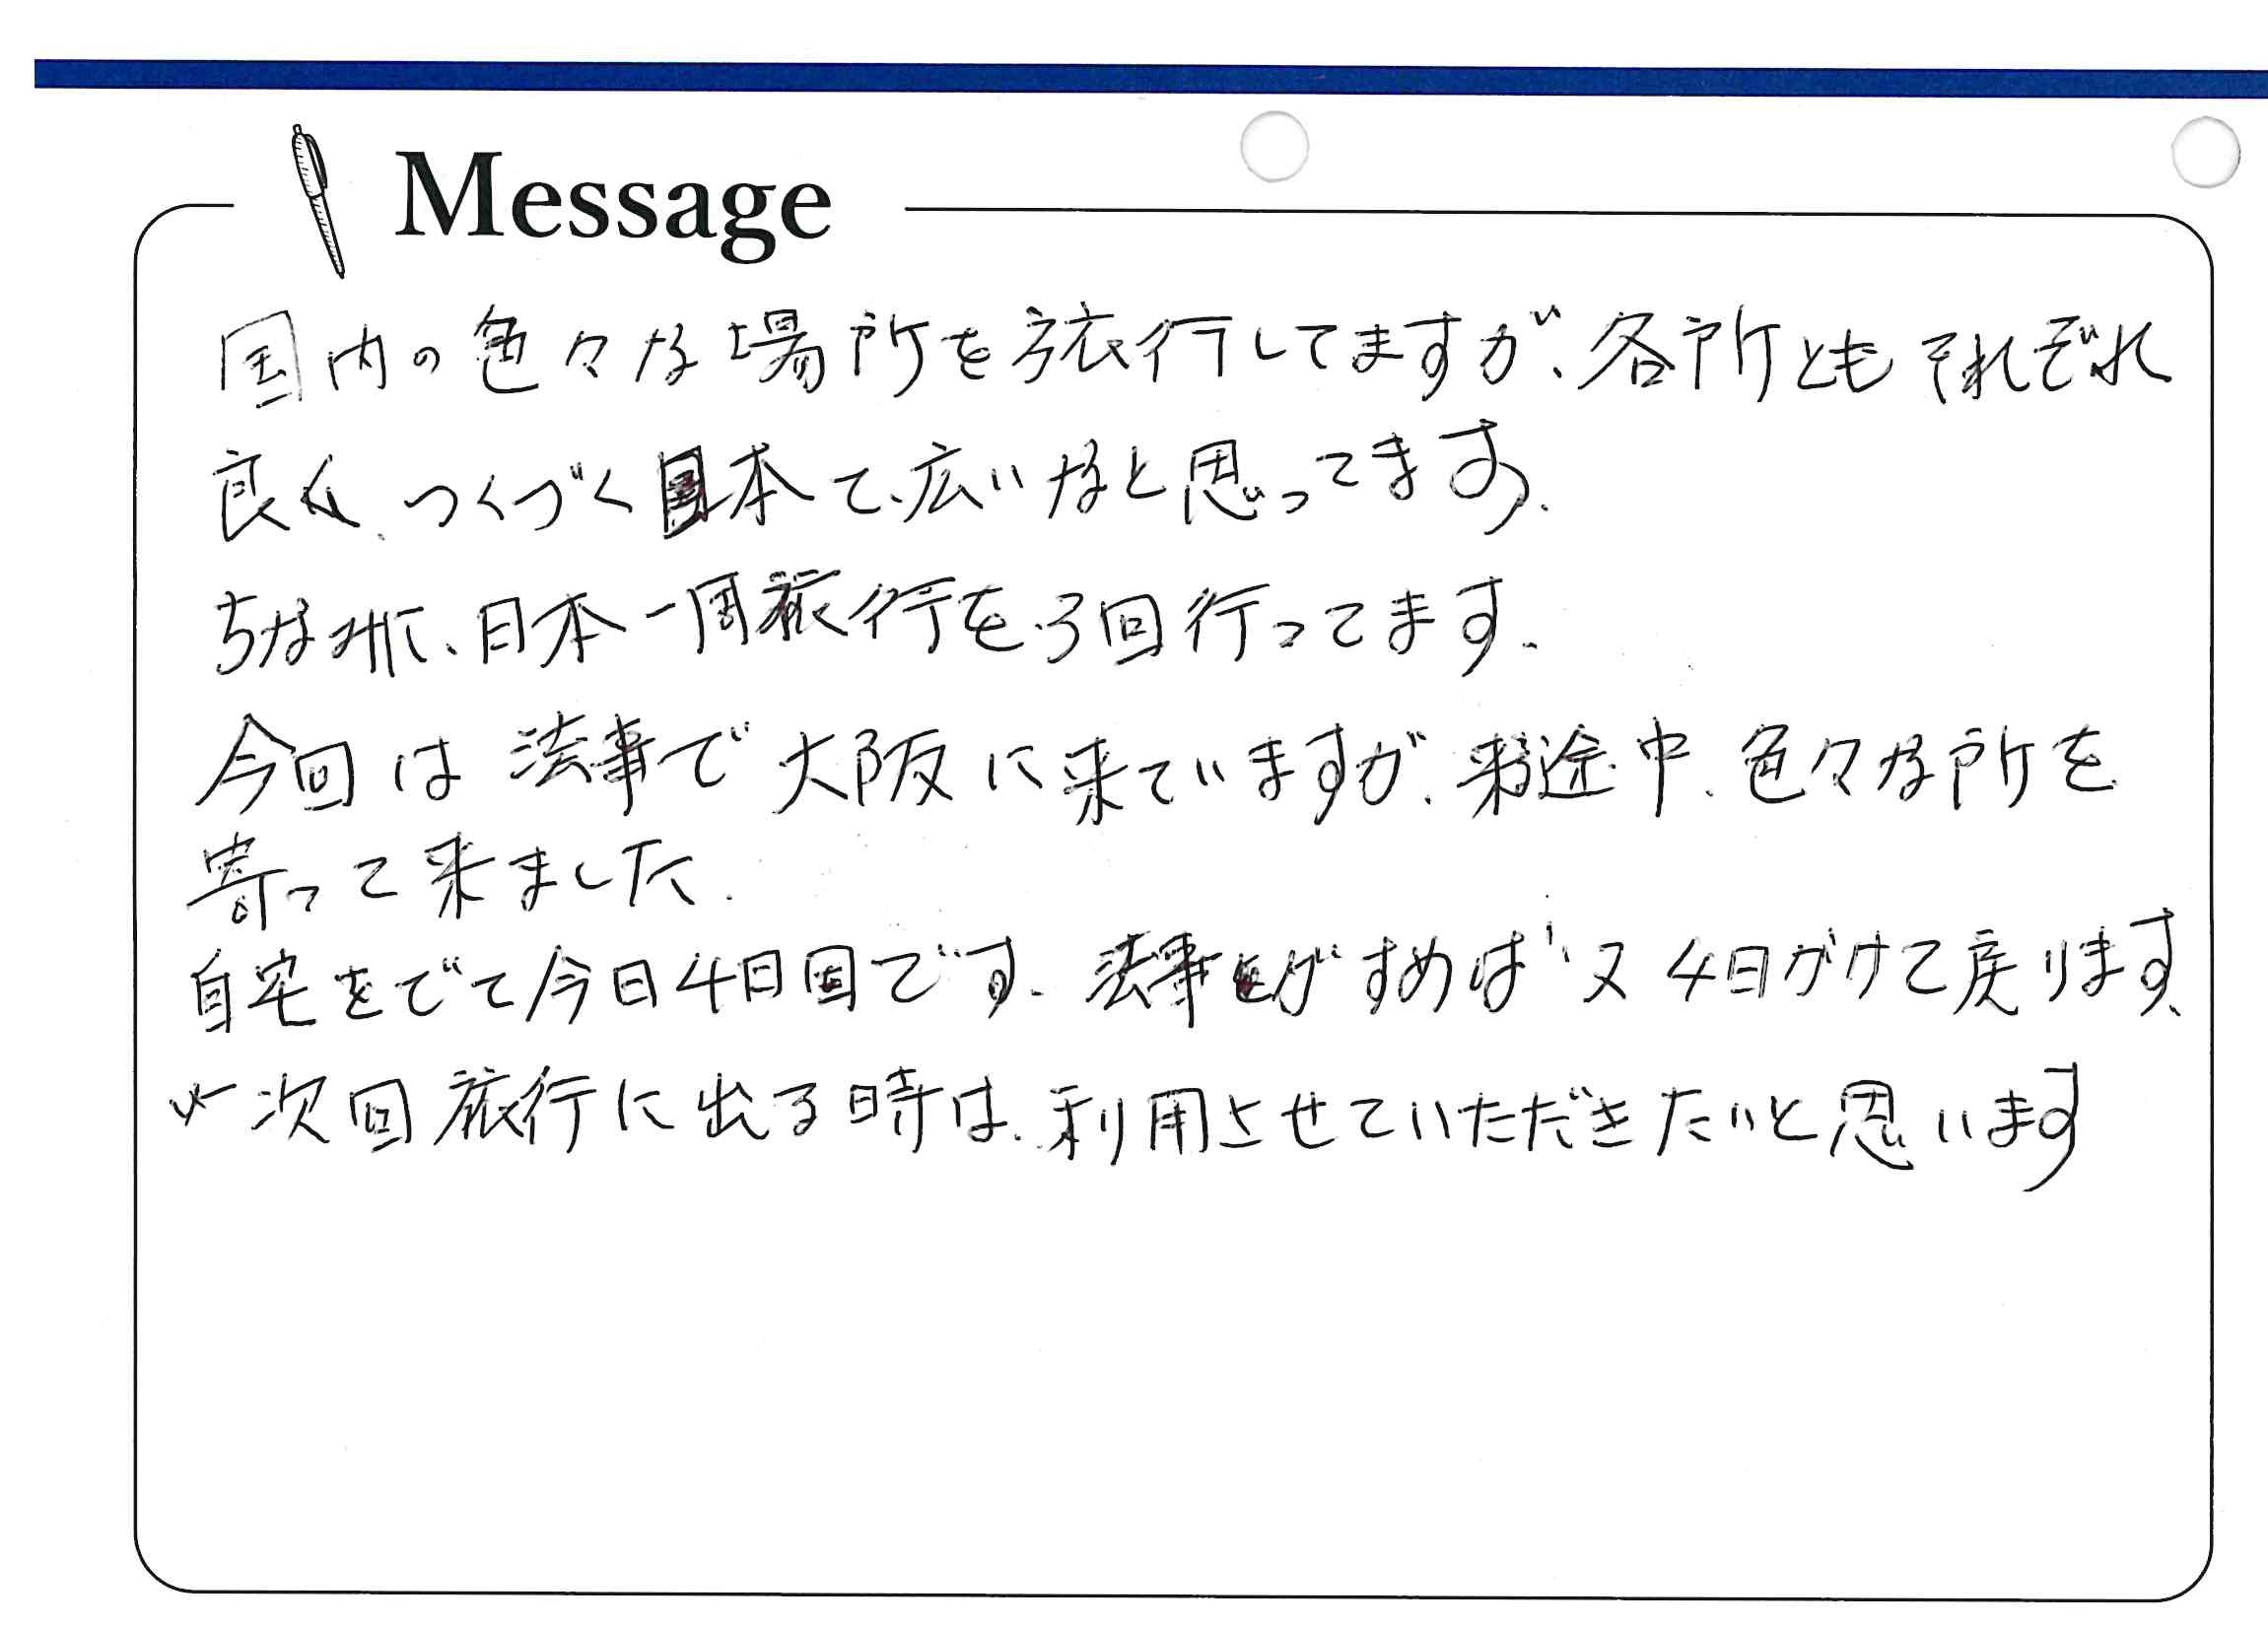 Message
国内の色々な場所を旅行してますが、各所ともそれぞれ
良く、つくづく日本て広いなと思ってます。
ちなみに、日本一周旅行を3回行ってます。
今回は法事で大阪に来ていますが、来る途中、色々な所を
寄って来ました。
自宅をでて今日4日目です。法事がすめば又4日かけて戻ります。
次回旅行に出る時は、利用させていただきたいと思います